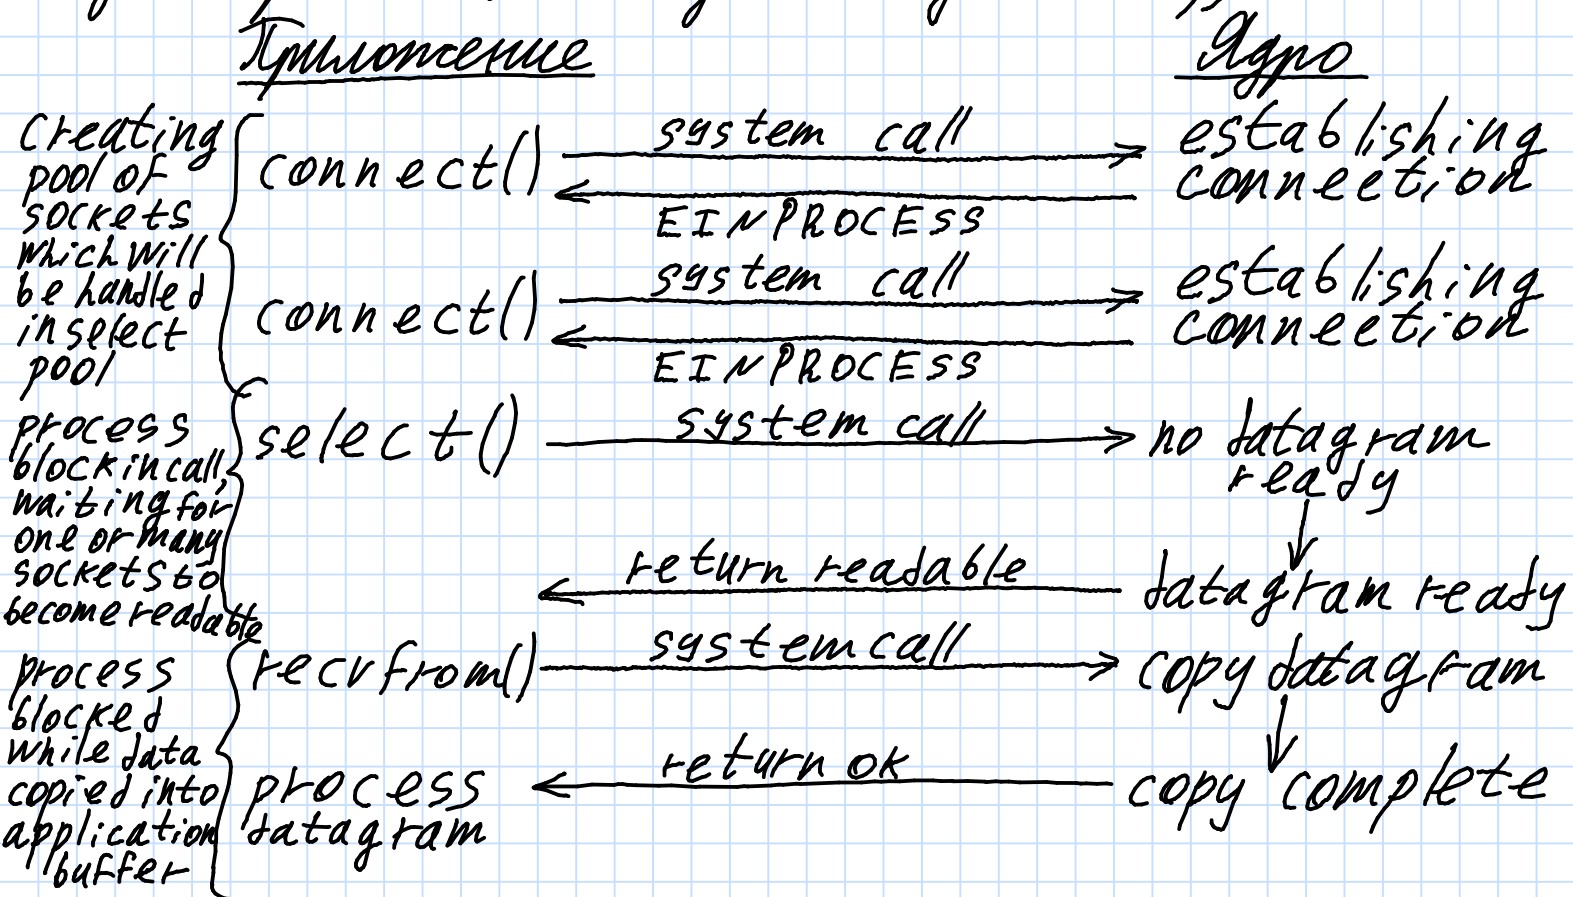 Приложение
Ядро
creating
pool of
sockets
which will
be handled
in select
pool
connect()
system call
establishing
connection
EINPROCESS
connect()
system call
establishing
connection
EINPROCESS
process
block in call,
waiting for
one or many
sockets to
become readable
select()
system call
no datagram
ready
return readable
datagram ready
process
blocked
while data
copied into
application
buffer
recvfrom()
system call
copy datagram
return ok
copy complete
process
datagram